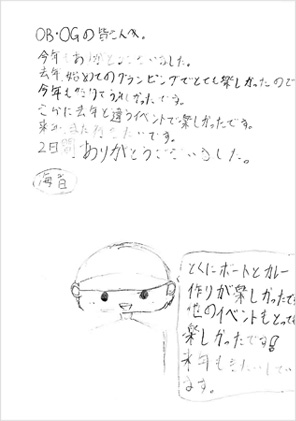 OB・OGの皆さんへ。
今年もありがとうございました。
去年、始めてのグランピングでとても楽しかったので
今年も
うれしかったです。
さらに去年と違うイベントで楽しかったです。
たいです。
2日間ありがとうございました。
海音
とくにボートとカレー
作りが楽しかったです
他のイベントもとっても
楽しかったです!
来年も
ます。